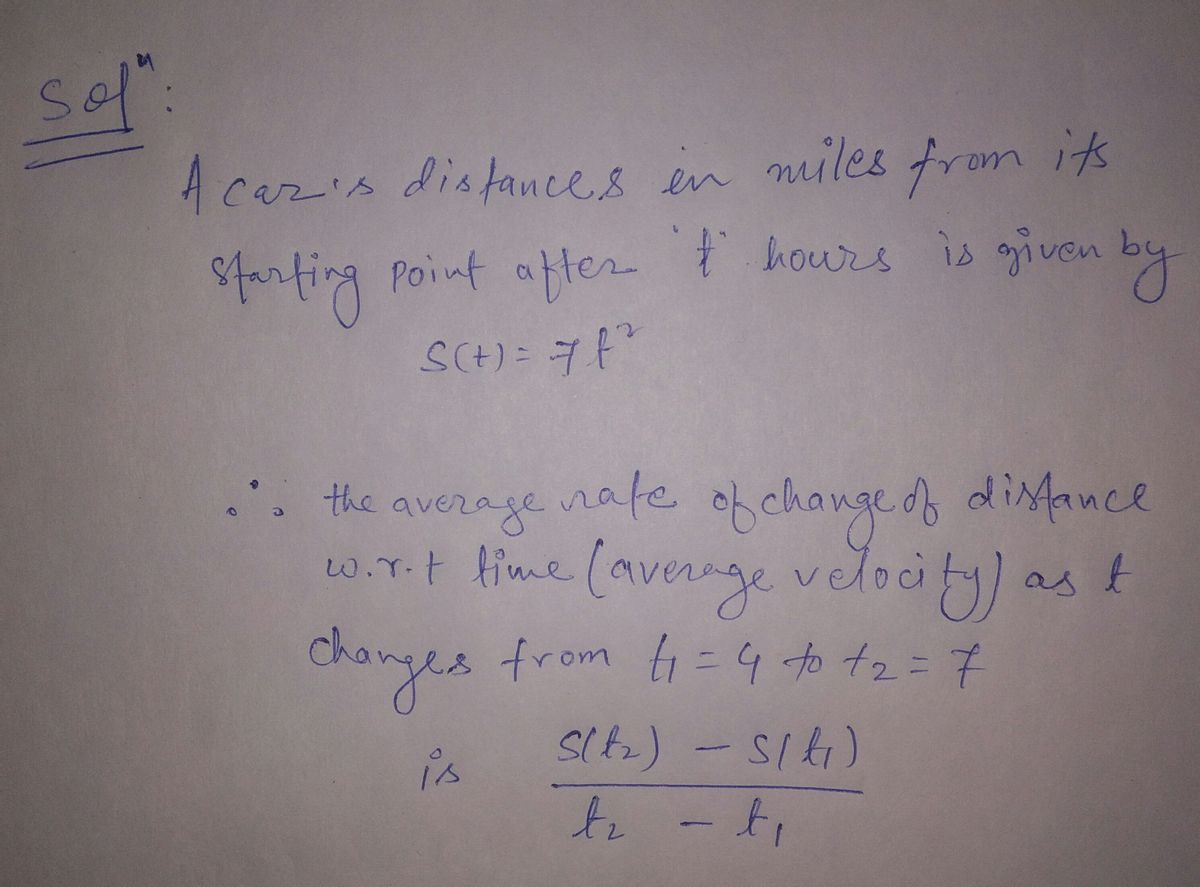 Solⁿ:
A car's distances in miles from its
starting point after 't' hours is given by
S(t) = 7t²
∴ the average rate of change of distance
w.r.t time (average velocity) as t
changes from t₁ = 4 to t₂ = 7
is S(t₂) - S(t₁)
t₂ - t₁